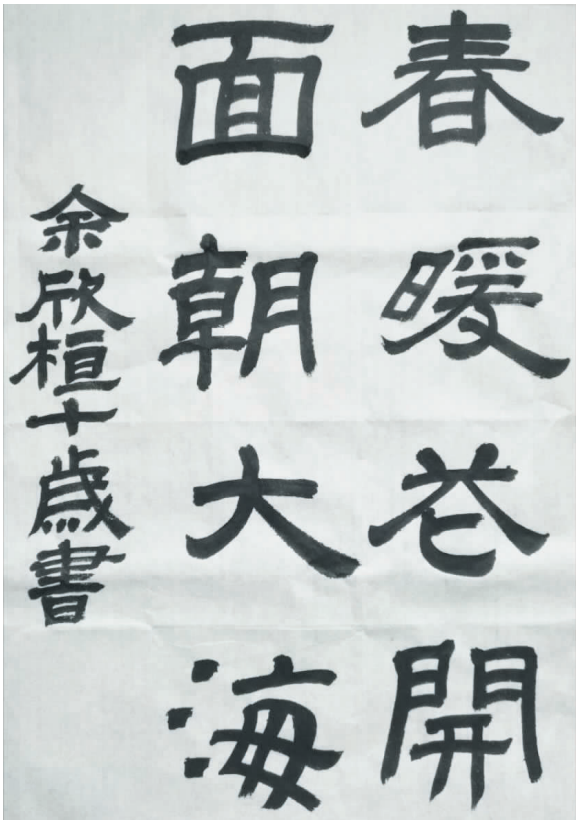 春暖花開
面朝大海
余欣桓十歲書